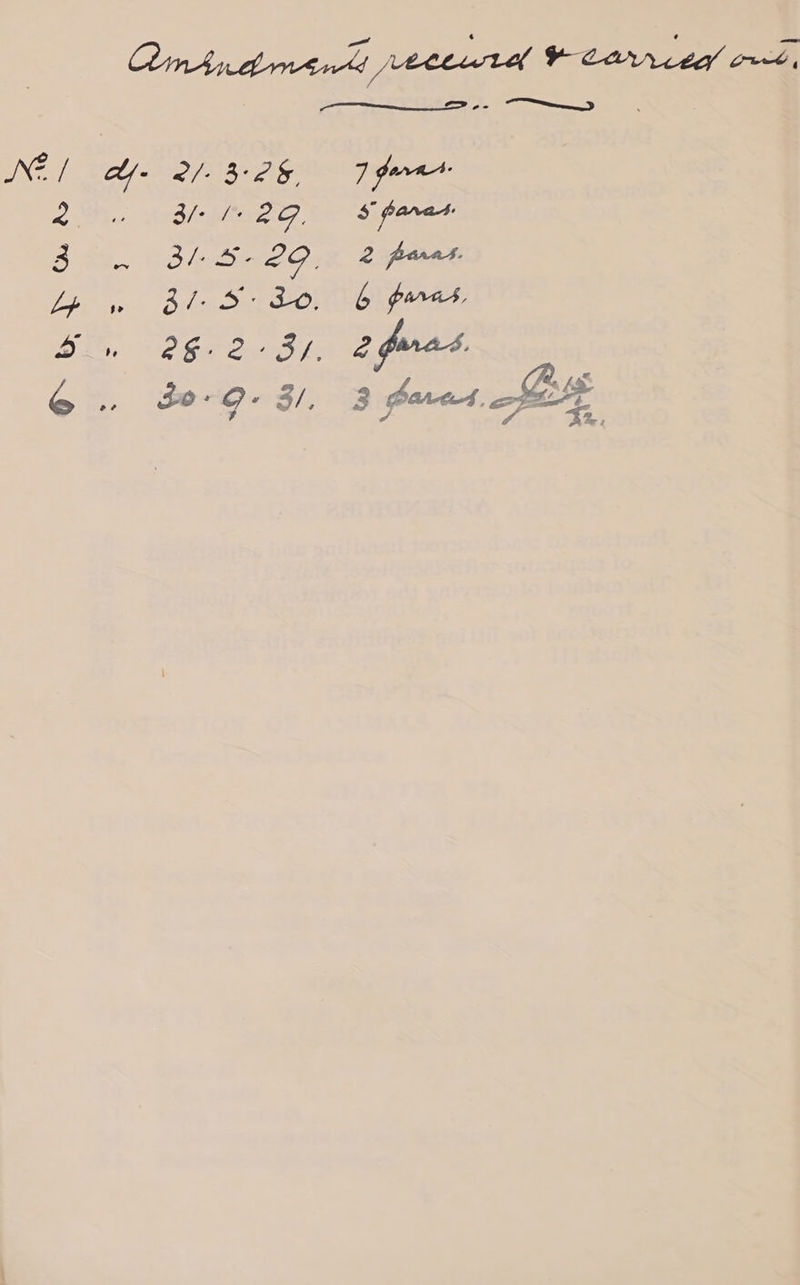 Amendments received & carried out.
No. 1 d/- 21-3-28. 7 paras.
2 " 31-1-29. 5 paras.
3 " 31-5-29. 2 paras.
4 " 31-5-30. 6 paras.
5 " 28-2-31. 2 paras.
6 " 30-9-31. 3 paras.